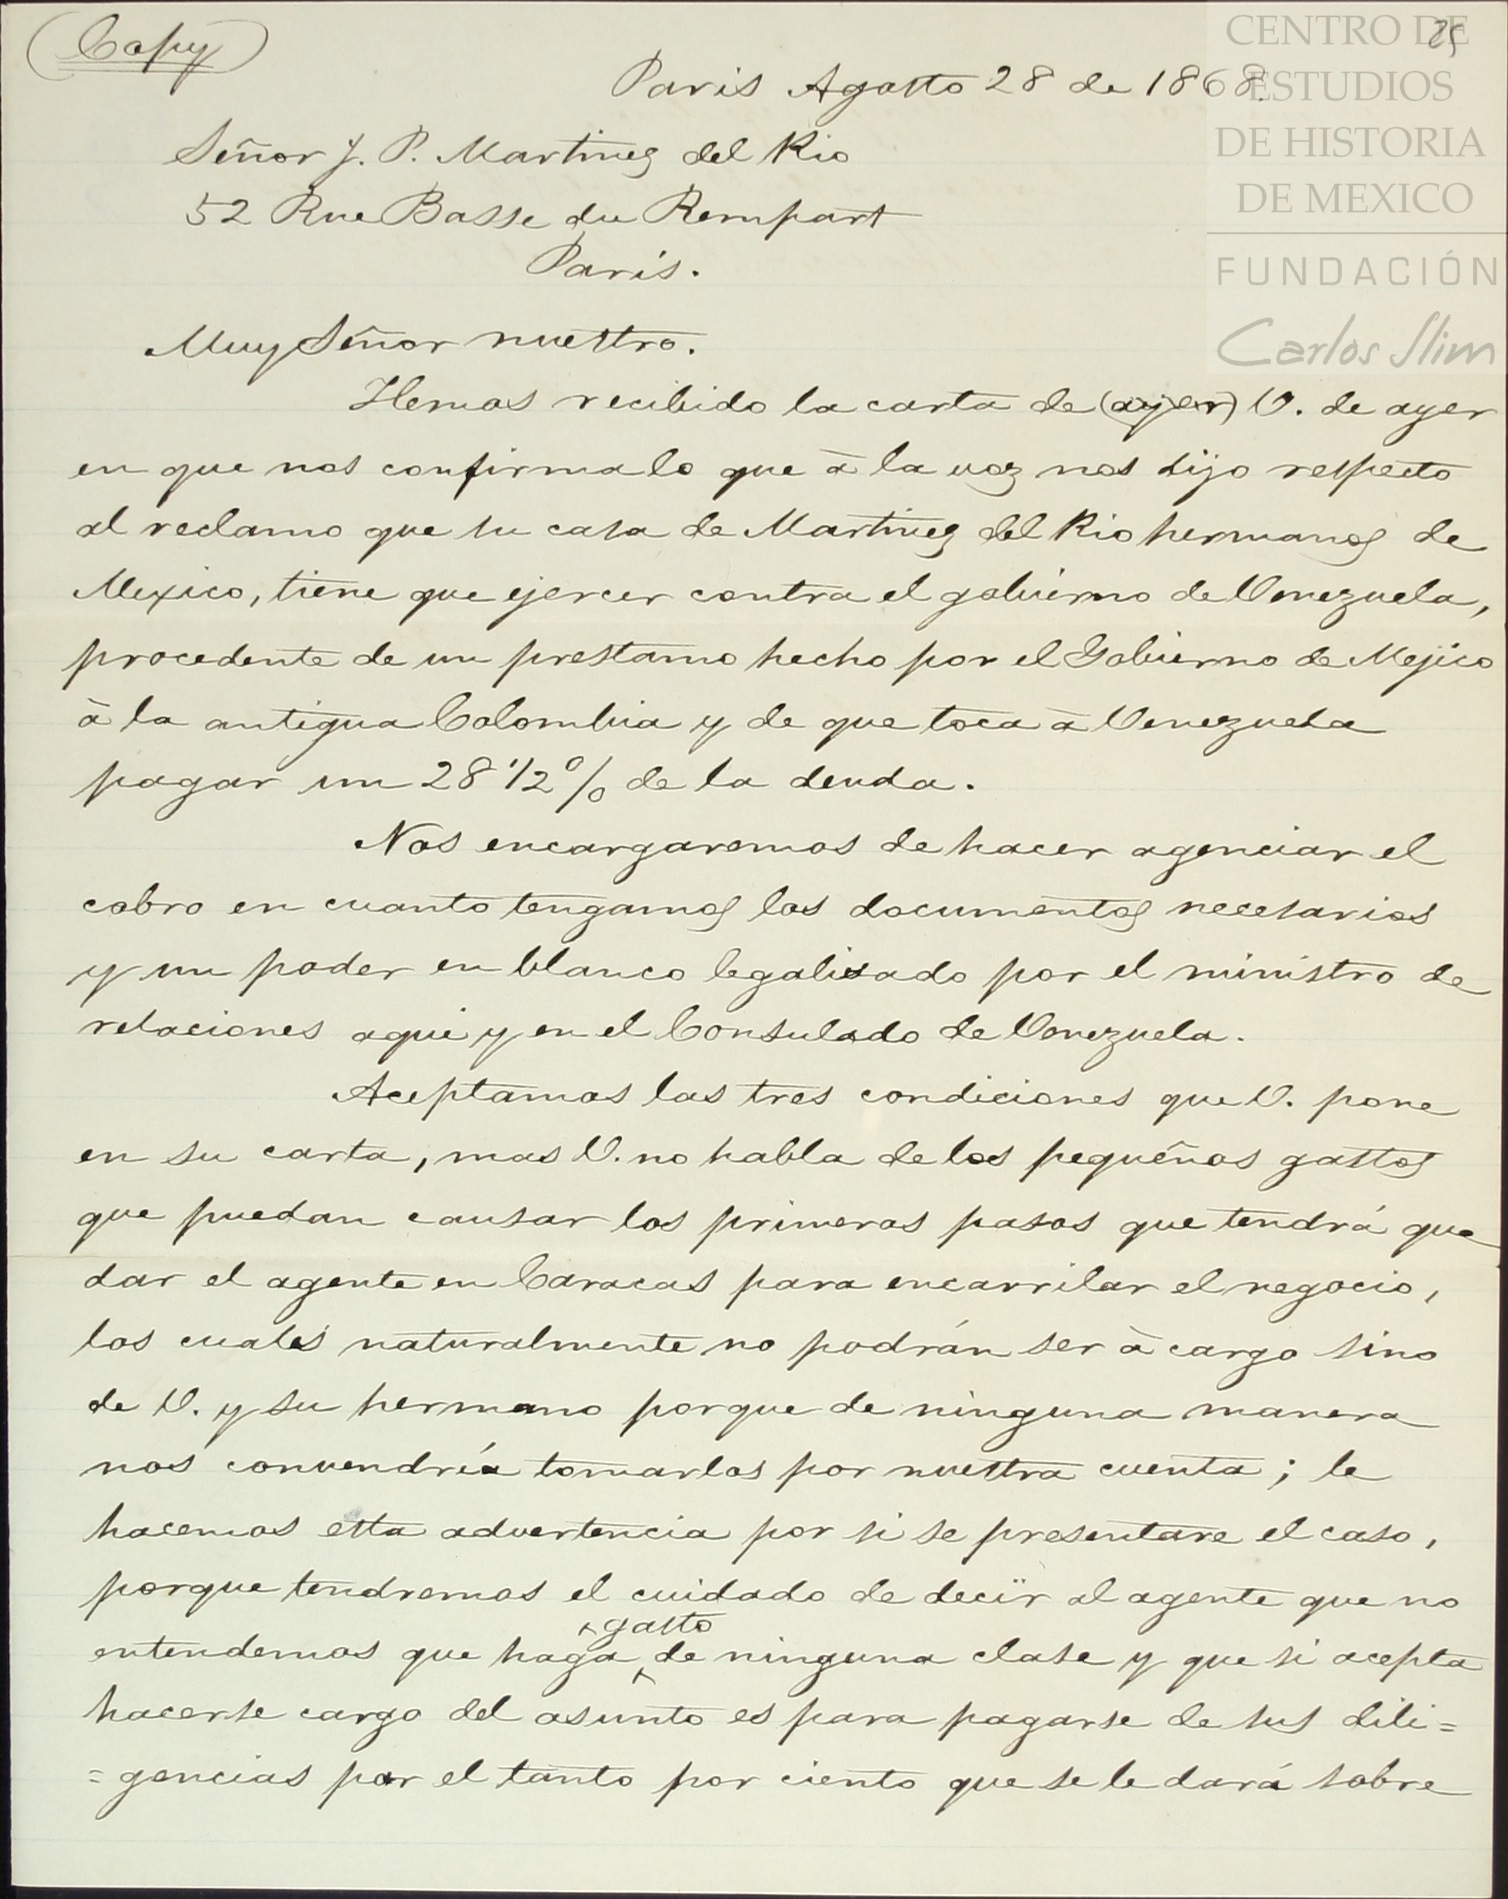 (Copy)
25
Paris Agosto 28 de 1868.
Señor J. P. Martinez del Rio
52 Rue Basse du Rempart
Paris.
Muy Señor nuestro.
Hemos recibido la carta de (ayer) V. de ayer
en que nos confirma lo que à la voz nos dijo respecto
al reclamo que su casa de Martinez del Rio hermanos de
Mexico, tiene que ejercer contra el gobierno de Venezuela,
procedente de un prestamo hecho por el Gobierno de Mejico
à la antigua Colombia y de que toca à Venezuela
pagar un 28 1/2 % de la deuda.
Nos encargaremos de hacer agenciar el
cobro en cuanto tengamos los documentos necesarios
y un poder en blanco legalisado por el ministro de
relaciones aqui y en el Consulado de Venezuela.
Aceptamos las tres condiciones que V. pone
en su carta, mas V. no habla de los pequeños gastos
que puedan causar los primeros pasos que tendrá que
dar el agente en Caracas para encarrilar el negocio,
los cuales naturalmente no podrán ser à cargo sino
de V. y su hermano porque de ninguna manera
nos convendría tomarlos por nuestra cuenta; le
hacemos esta advertencia por si se presentare el caso,
porque tendremos el cuidado de decir al agente que no
entendemos que haga gasto de ninguna clase y que si acepta
hacerse cargo del asunto es para pagarse de sus dili=
=gencias por el tanto por ciento que se le dará sobre
CENTRO DE
ESTUDIOS
DE HISTORIA
DE MEXICO
FUNDACIÓN
Carlos Slim